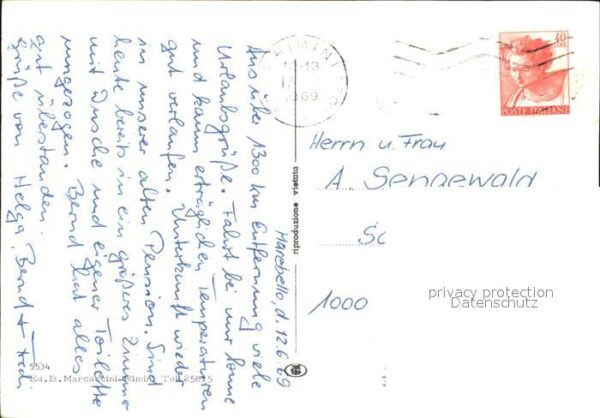 Marebello, d. 12.6.69
Aus über 1300 km Entfernung viele
Urlaubsgrüße. Fahrt bei nur Sonne
und kaum erträglichen Temperaturen
gut verlaufen. Unterkunft wieder
in unserer alten Pension. Sind
heute bereits in ein größeres Zimmer
mit Dusche und eigener Toilette
umgezogen. Bernd hat alles
gut überstanden.
Grüße von Helga, Bernd +
5534
Ed. B. Marcaccini-Rimini Tel. 25615
riproduzione vietata
RIMINI
1969
40
POSTE ITALIANE
Herrn u. Frau
A. Sennewald
Sc
1000
privacy protection
Datenschutz